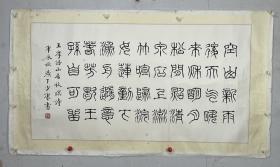 空山新雨
後天氣晚
來秋明月
松間照清
泉石上流
竹喧歸浣
女蓮動下
漁舟隨意
春芳歇王
孫自可留
王摩詰山居秋暝詩